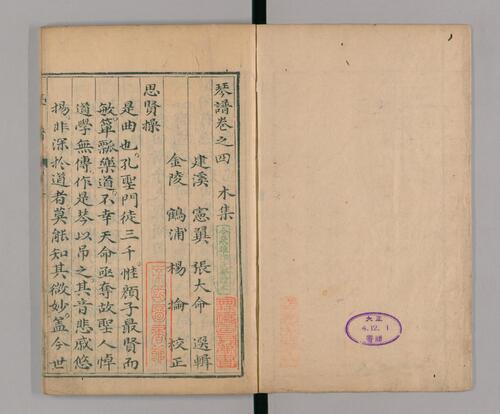 琴譜卷之四 木集
建溪 憲翼 張大命 選輯
金陵 鶴浦 楊掄 校正
思賢操
是曲也孔聖門徒三千惟顏子最賢而
敏簞瓢樂道不幸天命亟奪故聖人悼
道學無傳作是琴以吊之其音悲慼悠
揚非深於道者莫能知其微妙蓋今世
大正
4.12.1
購書